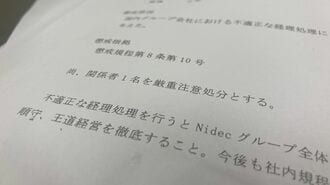 国内グループ会社における不適正な経理処理に
懲戒根拠
懲戒規程第8条第10号
尚、関係者1名を厳重注意処分とする。
不適正な経理処理を行うとNidecグループ全体
順守、王道経営を徹底すること。今後も社内規理